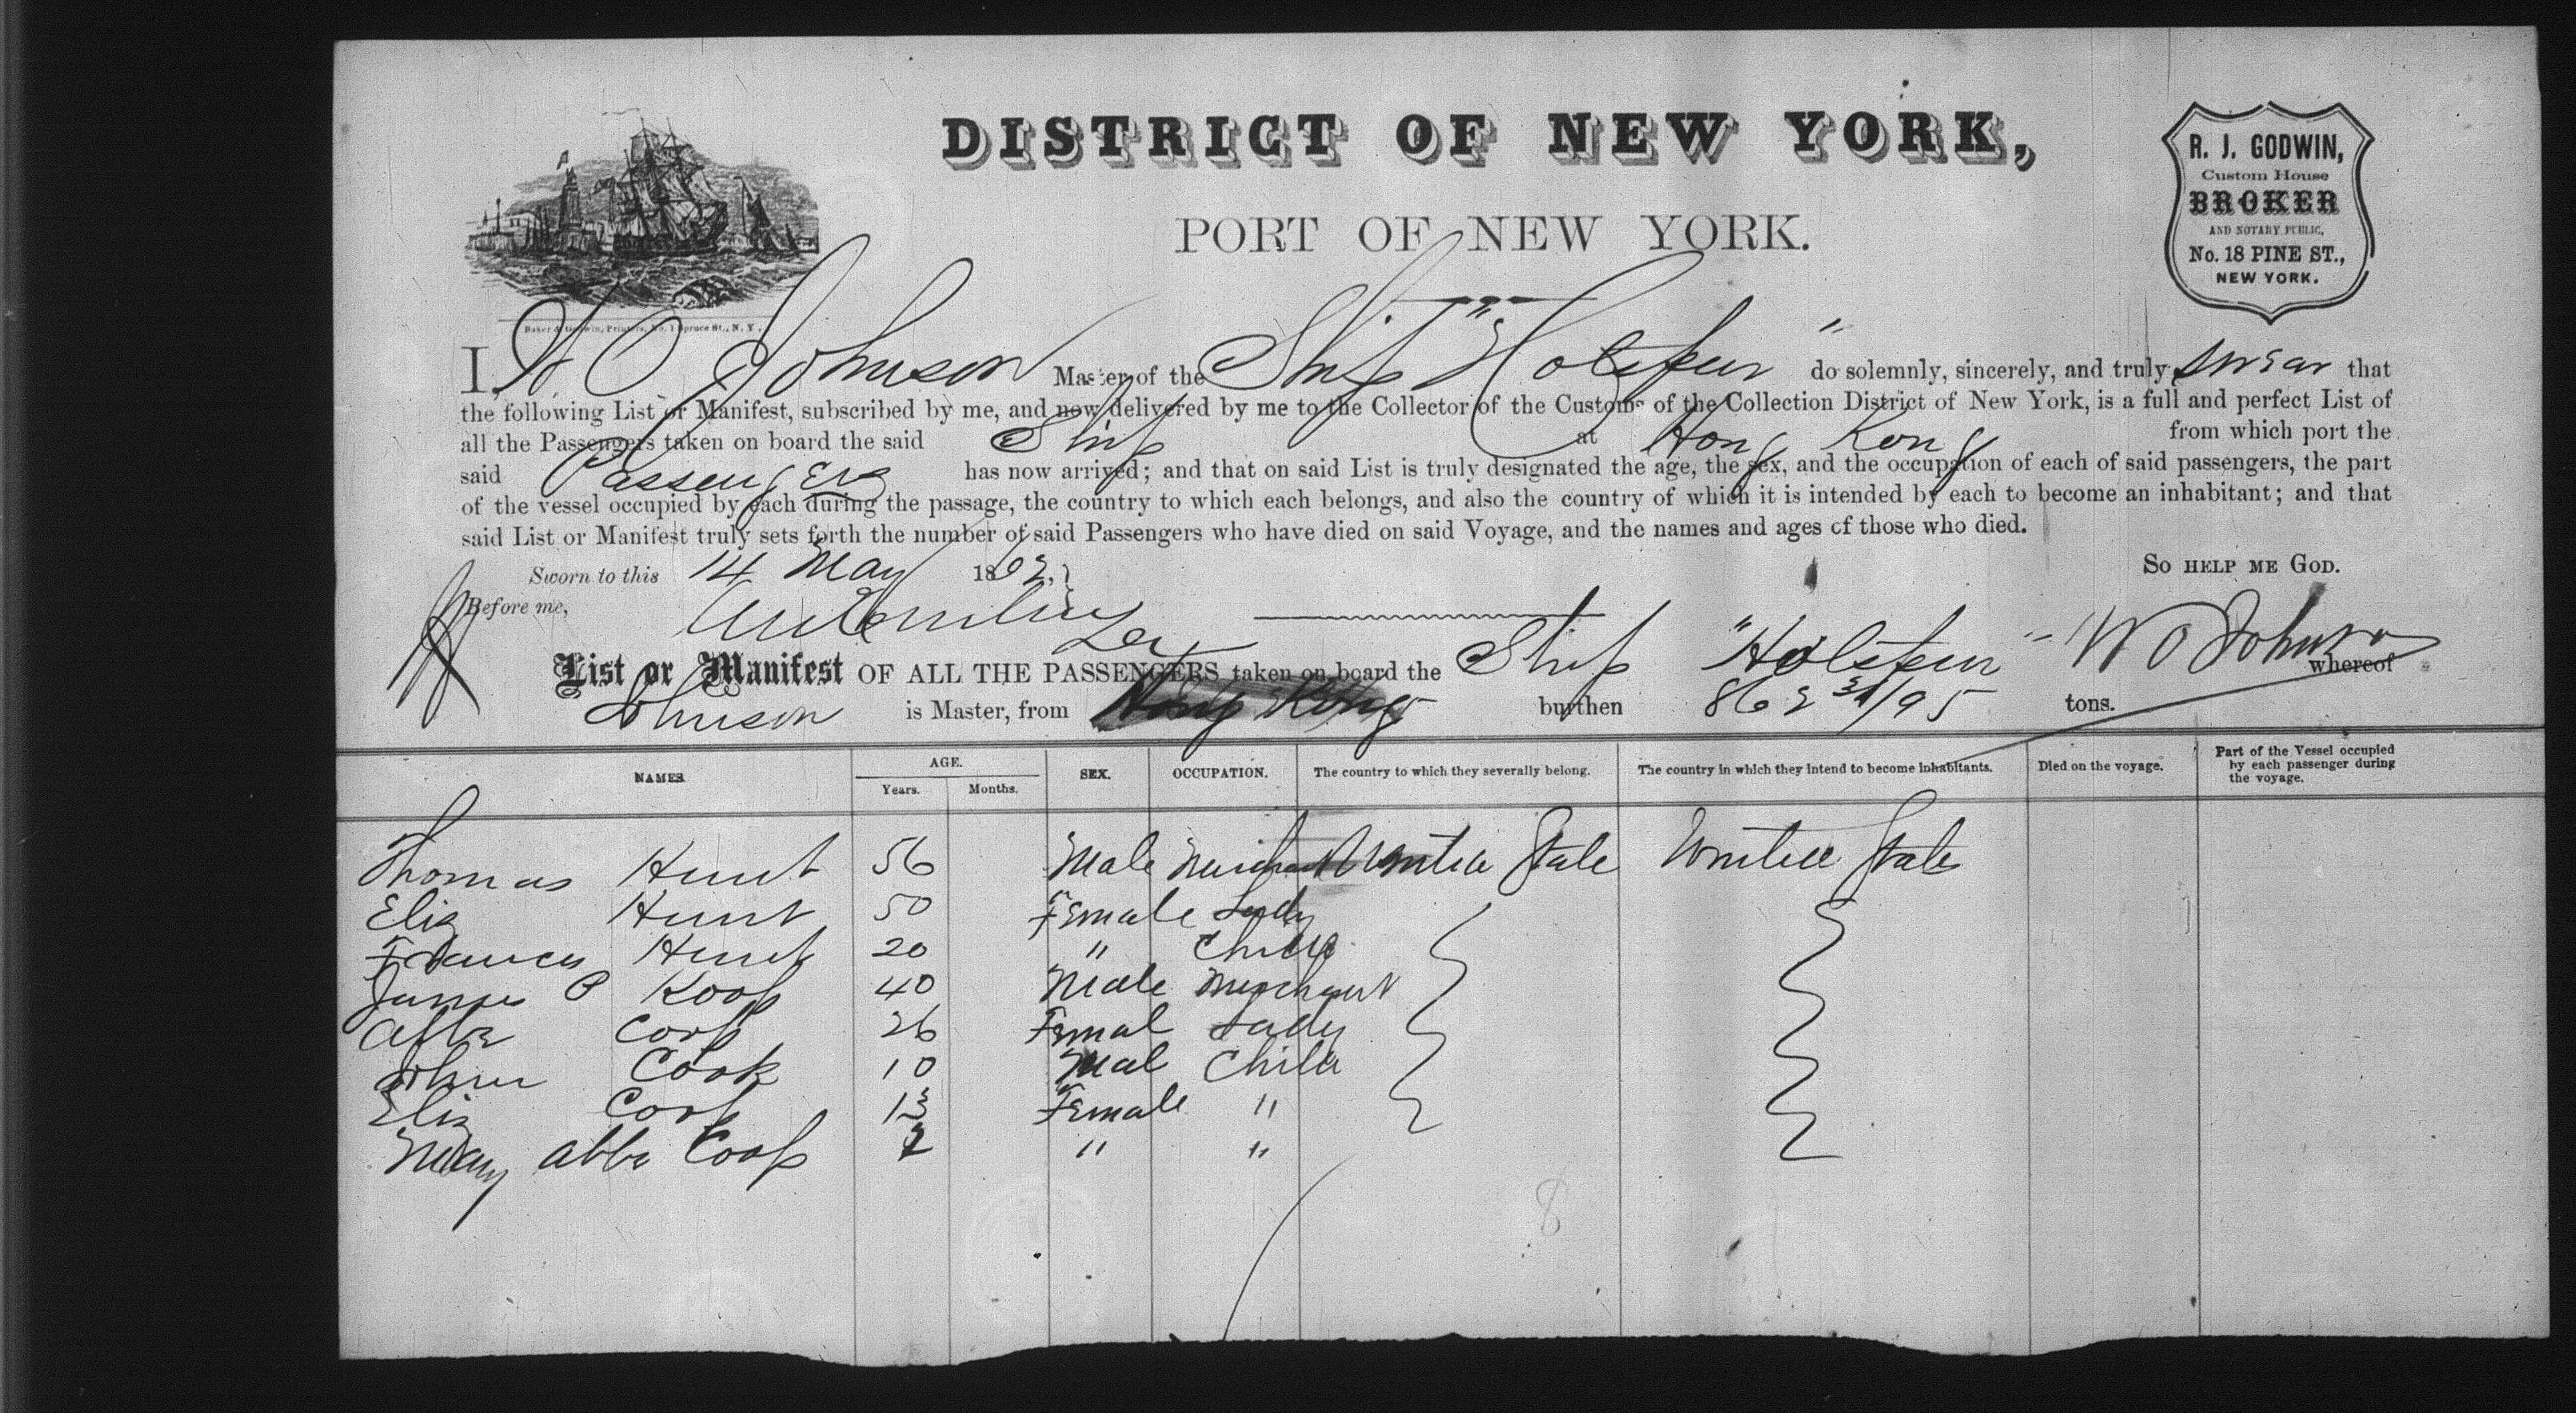 DISTRICT OF NEW YORK,
PORT OF NEW YORK.
R. J. GODWIN,
Custom House
BROKER
AND NOTARY PUBLIC,
No. 18 PINE ST.,
NEW YORK.
Baker & Godwin, Printers, No. 1 Spruce St., N. Y.
I, W. O Johnson Master of the Ship " Hotspur " do solemnly, sincerely, and truly swear that
the following List or Manifest, subscribed by me, and now delivered by me to the Collector of the Customs of the Collection District of New York, is a full and perfect List of
all the Passengers taken on board the said Ship at Hong Kong from which port the
said Passengers has now arrived; and that on said List is truly designated the age, the sex, and the occupation of each of said passengers, the part
of the vessel occupied by each during the passage, the country to which each belongs, and also the country of which it is intended by each to become an inhabitant; and that
said List or Manifest truly sets forth the number of said Passengers who have died on said Voyage, and the names and ages of those who died.
Sworn to this 14 May 1862. So help me God.
Before me,
W O Johnson
List or Manifest OF ALL THE PASSENGERS taken on board the Ship "Hotspur" whereof
Johnson is Master, from Hong Kong burthen 862 /95 tons.
NAMES AGE. SEX. OCCUPATION. The country to which they severally belong. The country in which they intend to become inhabitants. Died on the voyage. Part of the Vessel occupied by each passenger during the voyage.
Years. Months.
Thomas Hunt 56 Male Merchant United State United State
Eliz Hunt 50 Female Lady
Frances Hunt 20 " Child
James P Koop 40 Male Merchant
Coop 26 Femal Lady
John Cook 10 Mal Child
Eliz Coop 13 Female "
Mary Abba Coop 2 " "
8